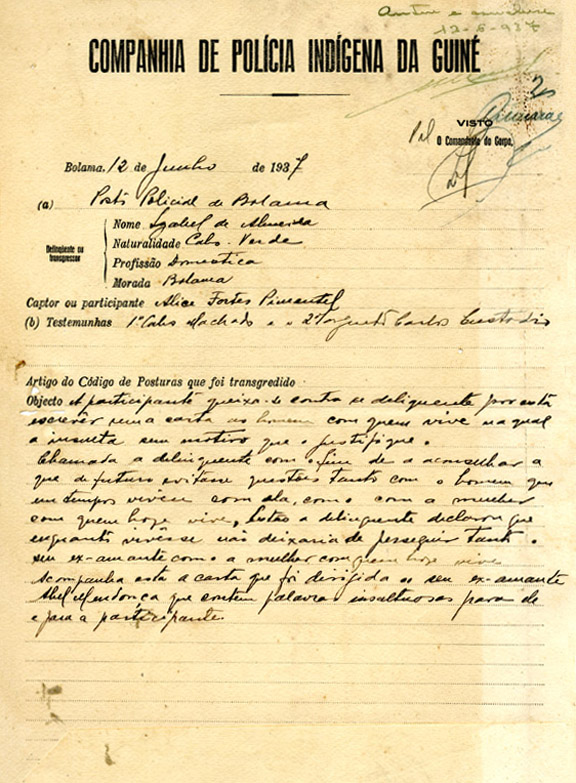 12-6-937
COMPANHIA DE POLÍCIA INDÍGENA DA GUINÉ
VISTO
O Comandante do Corpo,
Bolama, 12 de Junho de 1937
(a) Posto Policial de Bolama
Delinqüente ou transgressor
Nome Izabel de Almeida
Naturalidade Cabo-Verde
Profissão Domestica
Morada Bolama
Captor ou participante Alice Fortes Pimentel
(b) Testemunhas 1º Cabo Machado e o 2º Sargento Carlos Custodio
Artigo do Código de Posturas que foi transgredido
Objecto A participante queixa-se contra a delinquente por esta
escrever uma carta ao homem com quem vive na qual
a insulta sem motivo que o justifique.
Chamada a delinquente com o fim de a aconselhar a
que de futuro evitasse questões tanto com o homem que
em tempos viveu com ela, como com a mulher
com quem hoje vive, então a delinquente declarou que
enquanto vivesse não deixaria de perseguir tanto o
seu ex-amante como a mulher com quem hoje vive
Acompanha esta a carta que foi dirigida ao seu ex-amante
Abel Mendonca que contem palavras insultuosas para ele
e para a participante.